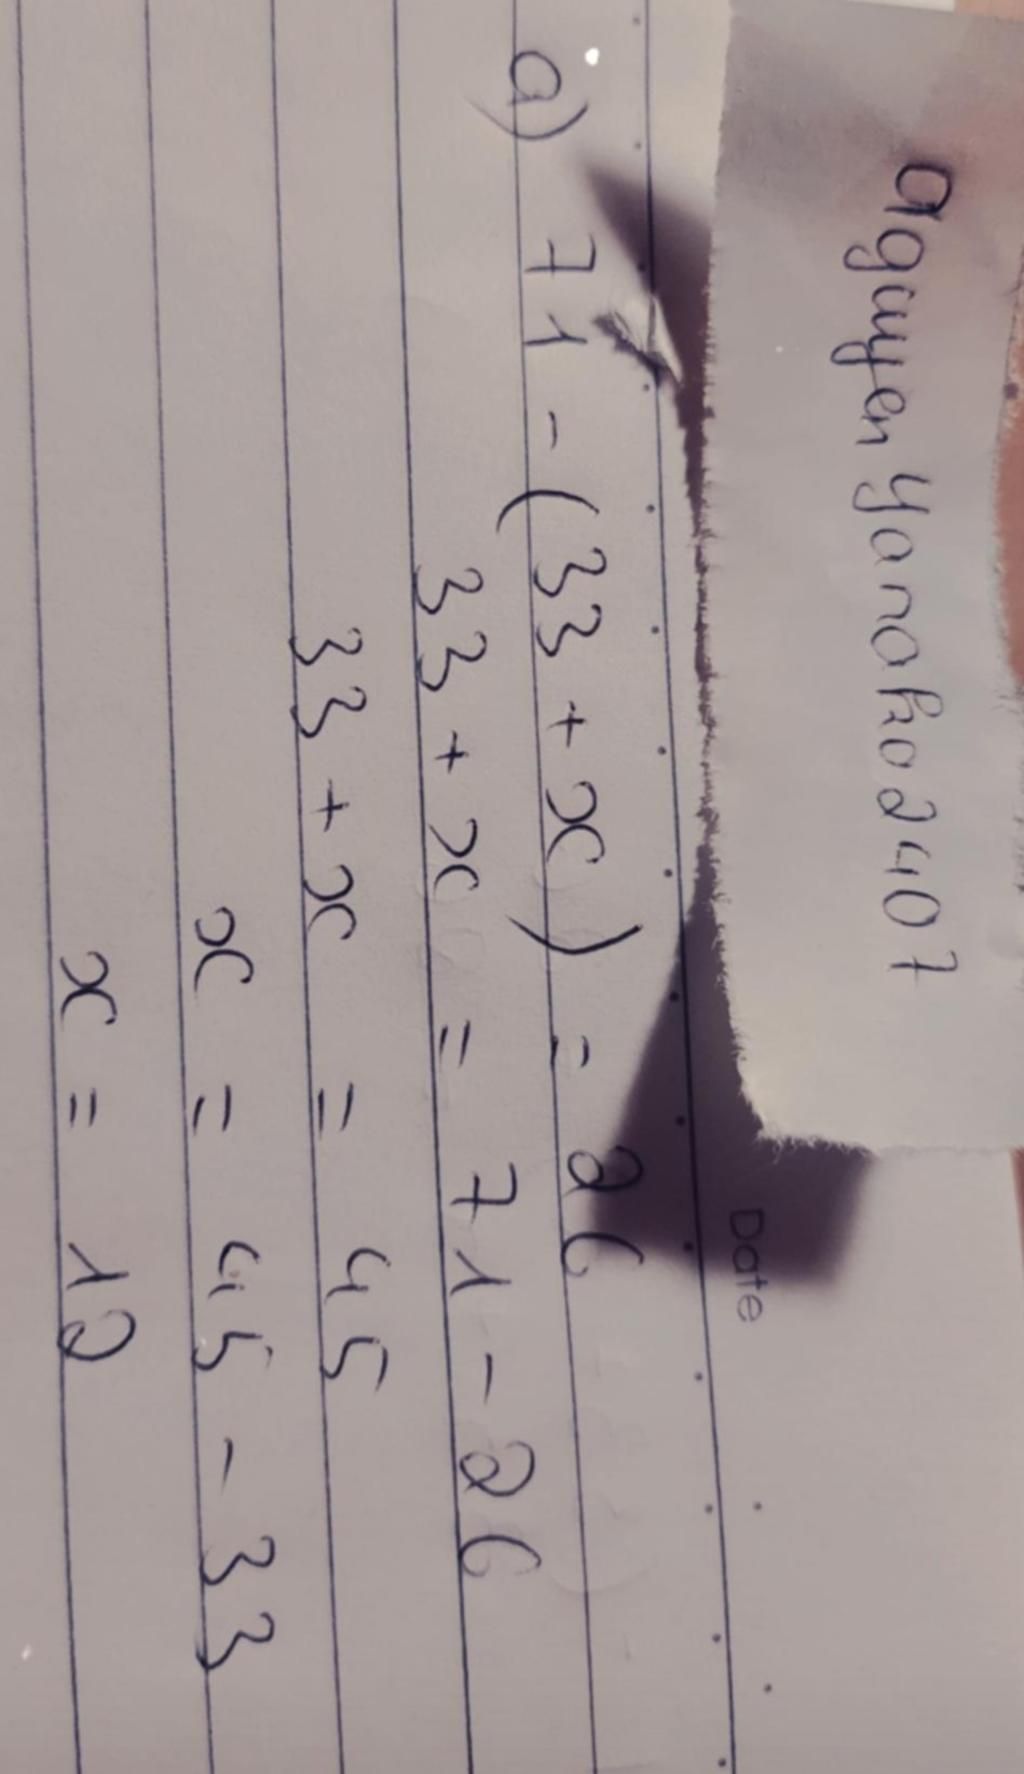 nguyenyanako2407
Date
a) 71 - (33 + x) = 26
33 + x = 71 - 26
33 + x = 45
x = 45 - 33
x = 12